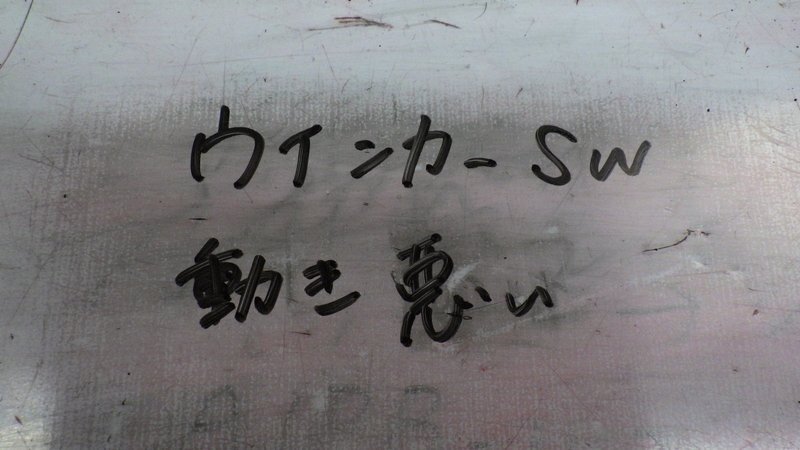 ウインカーSW
動き悪い